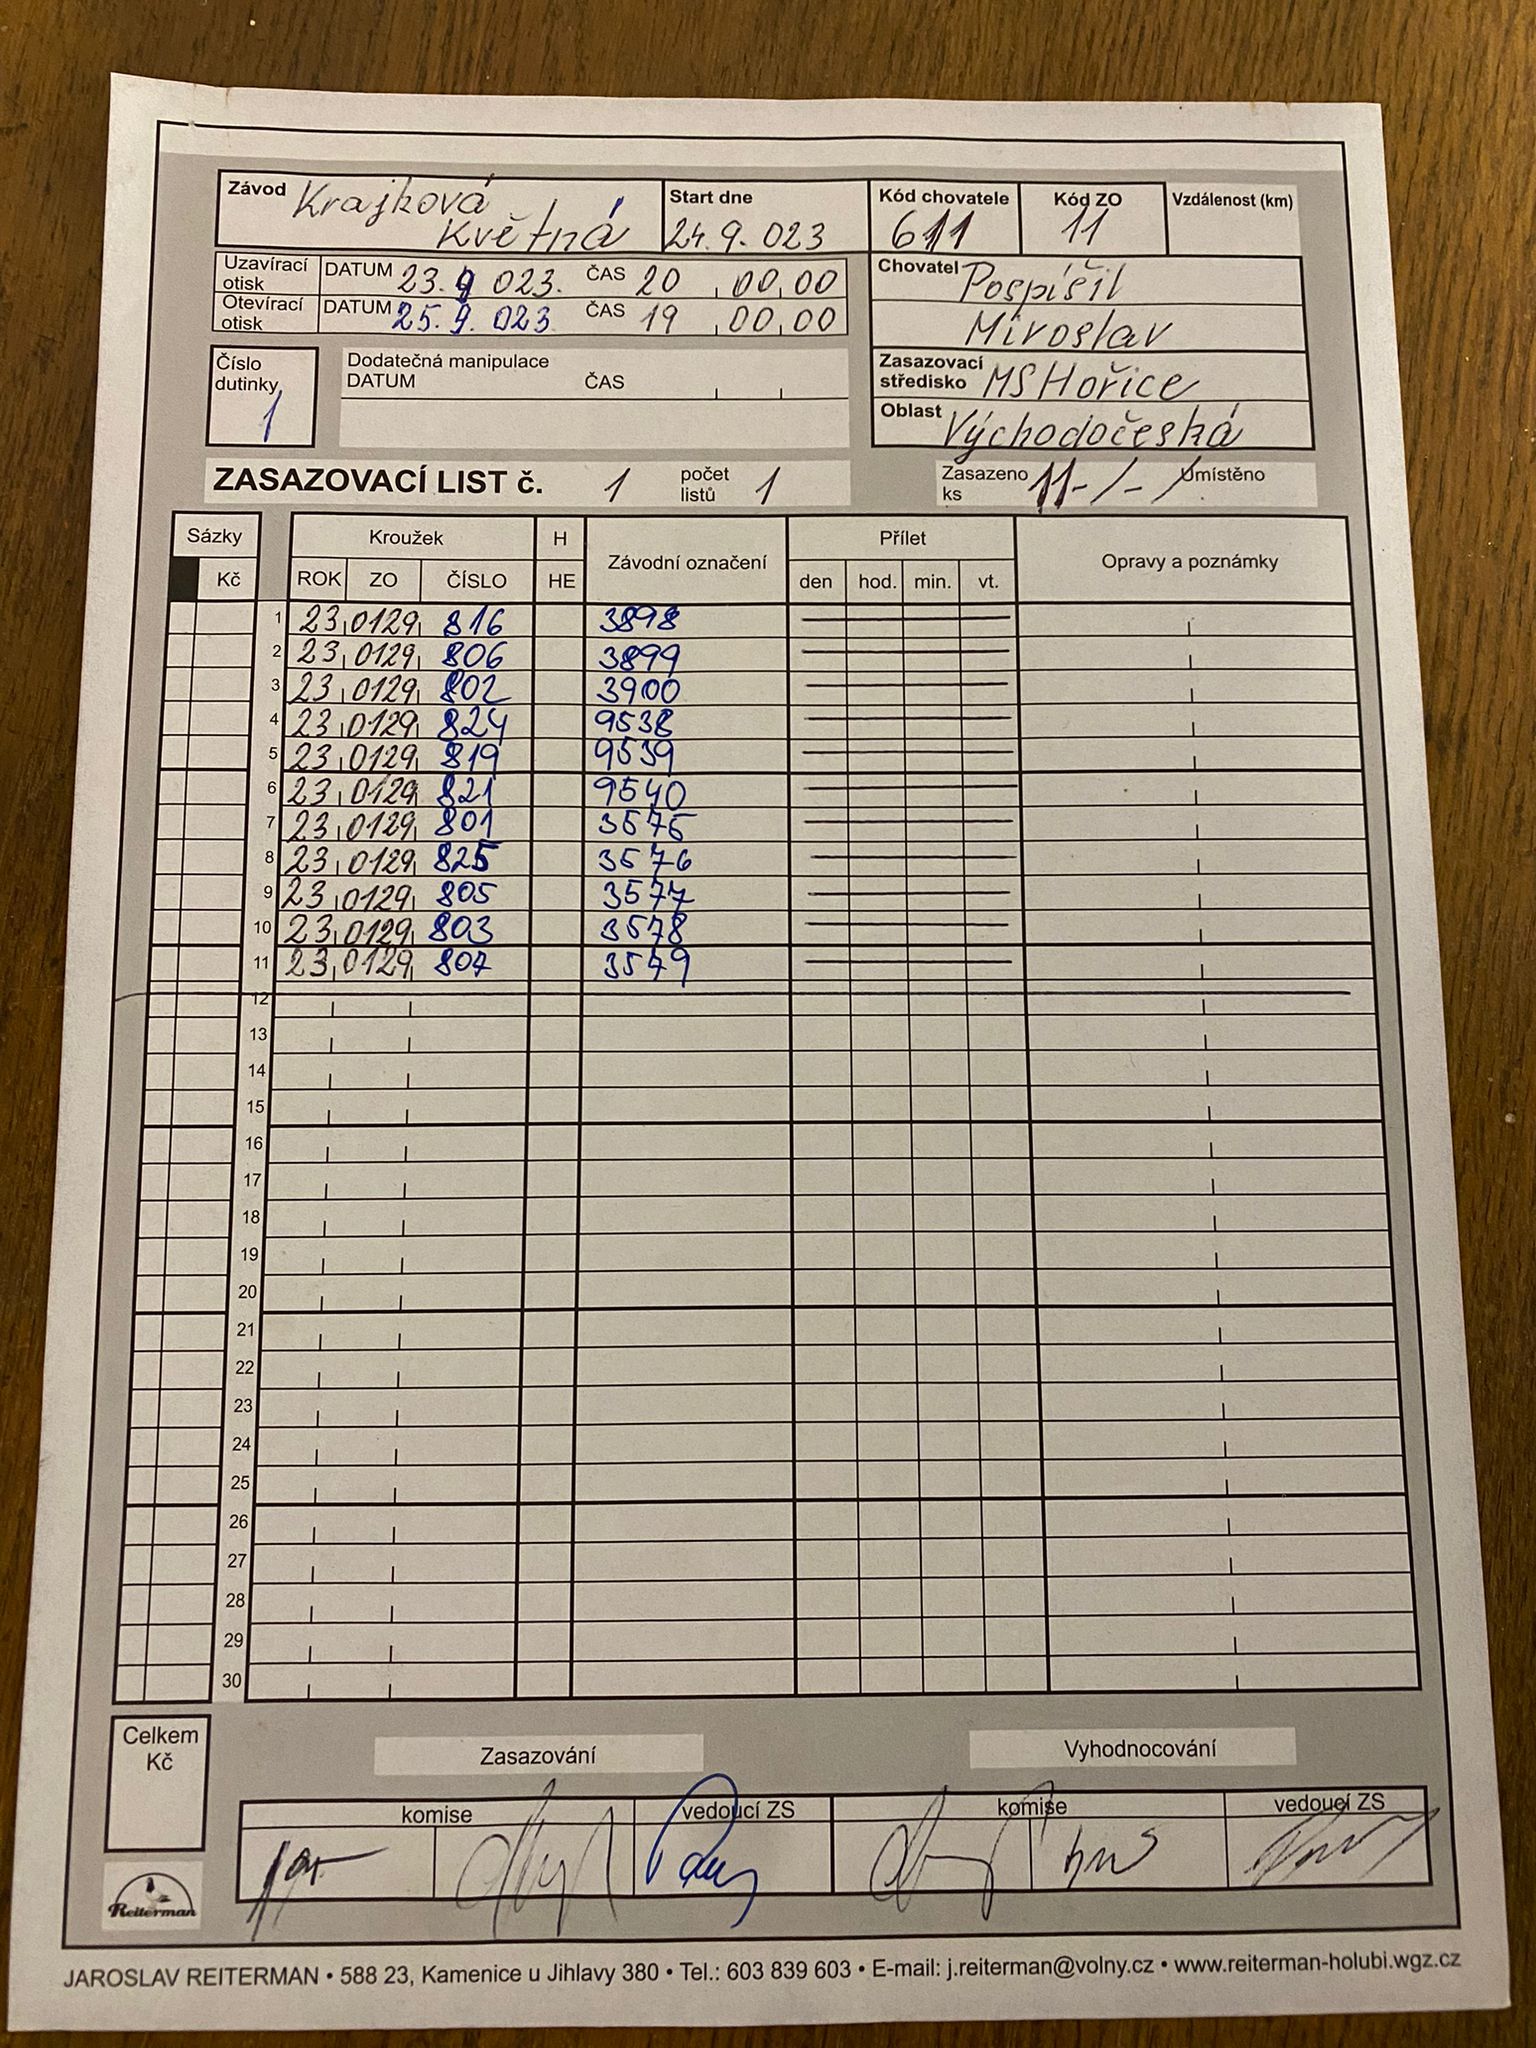 Závod Krajková
Květná
Start dne
24.9.023
Kód chovatele
611
Kód ZO
11
Vzdálenost (km)
Uzavírací otisk DATUM 23.9 023. ČAS 20 00 00
Otevírací otisk DATUM 25.9.023 ČAS 19 00 00
Chovatel Pospíšil
Miroslav
Zasazovací středisko MS Hořice
Oblast Východočeská
Číslo dutinky
1
Dodatečná manipulace
DATUM ČAS
ZASAZOVACÍ LIST č. 1 počet listů 1
Zasazeno ks 11-/-/ Umístěno
Sázky Kroužek H Závodní označení Přílet Opravy a poznámky
Kč ROK ZO ČÍSLO HE den hod. min. vt.
1 23 0129 816 3898
2 23 0129 806 3899
3 23 0129 802 3900
4 23 0129 824 9538
5 23 0129 819 9539
6 23 0129 821 9540
7 23 0129 801 3575
8 23 0129 825 3576
9 23 0129 805 3577
10 23 0129 803 3578
11 23 0129 807 3579
12
13
14
15
16
17
18
19
20
21
22
23
24
25
26
27
28
29
30
Celkem
Kč
Zasazování Vyhodnocování
komise vedoucí ZS komise vedoucí ZS
Reiterman
JAROSLAV REITERMAN • 588 23, Kamenice u Jihlavy 380 • Tel.: 603 839 603 • E-mail: j.reiterman@volny.cz • www.reiterman-holubi.wgz.cz